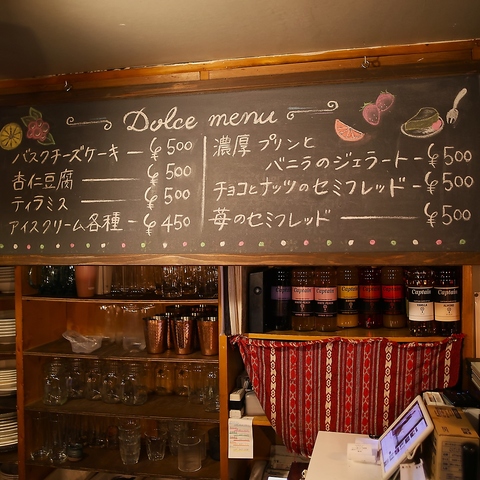 Dolce menu
バスクチーズケーキ — ¥500
杏仁豆腐 — ¥500
ティラミス — ¥500
アイスクリーム各種 — ¥450
濃厚 プリンと
バニラのジェラート — ¥500
チョコとナッツのセミフレッド — ¥500
苺のセミフレッド — ¥500
Captain
Captain